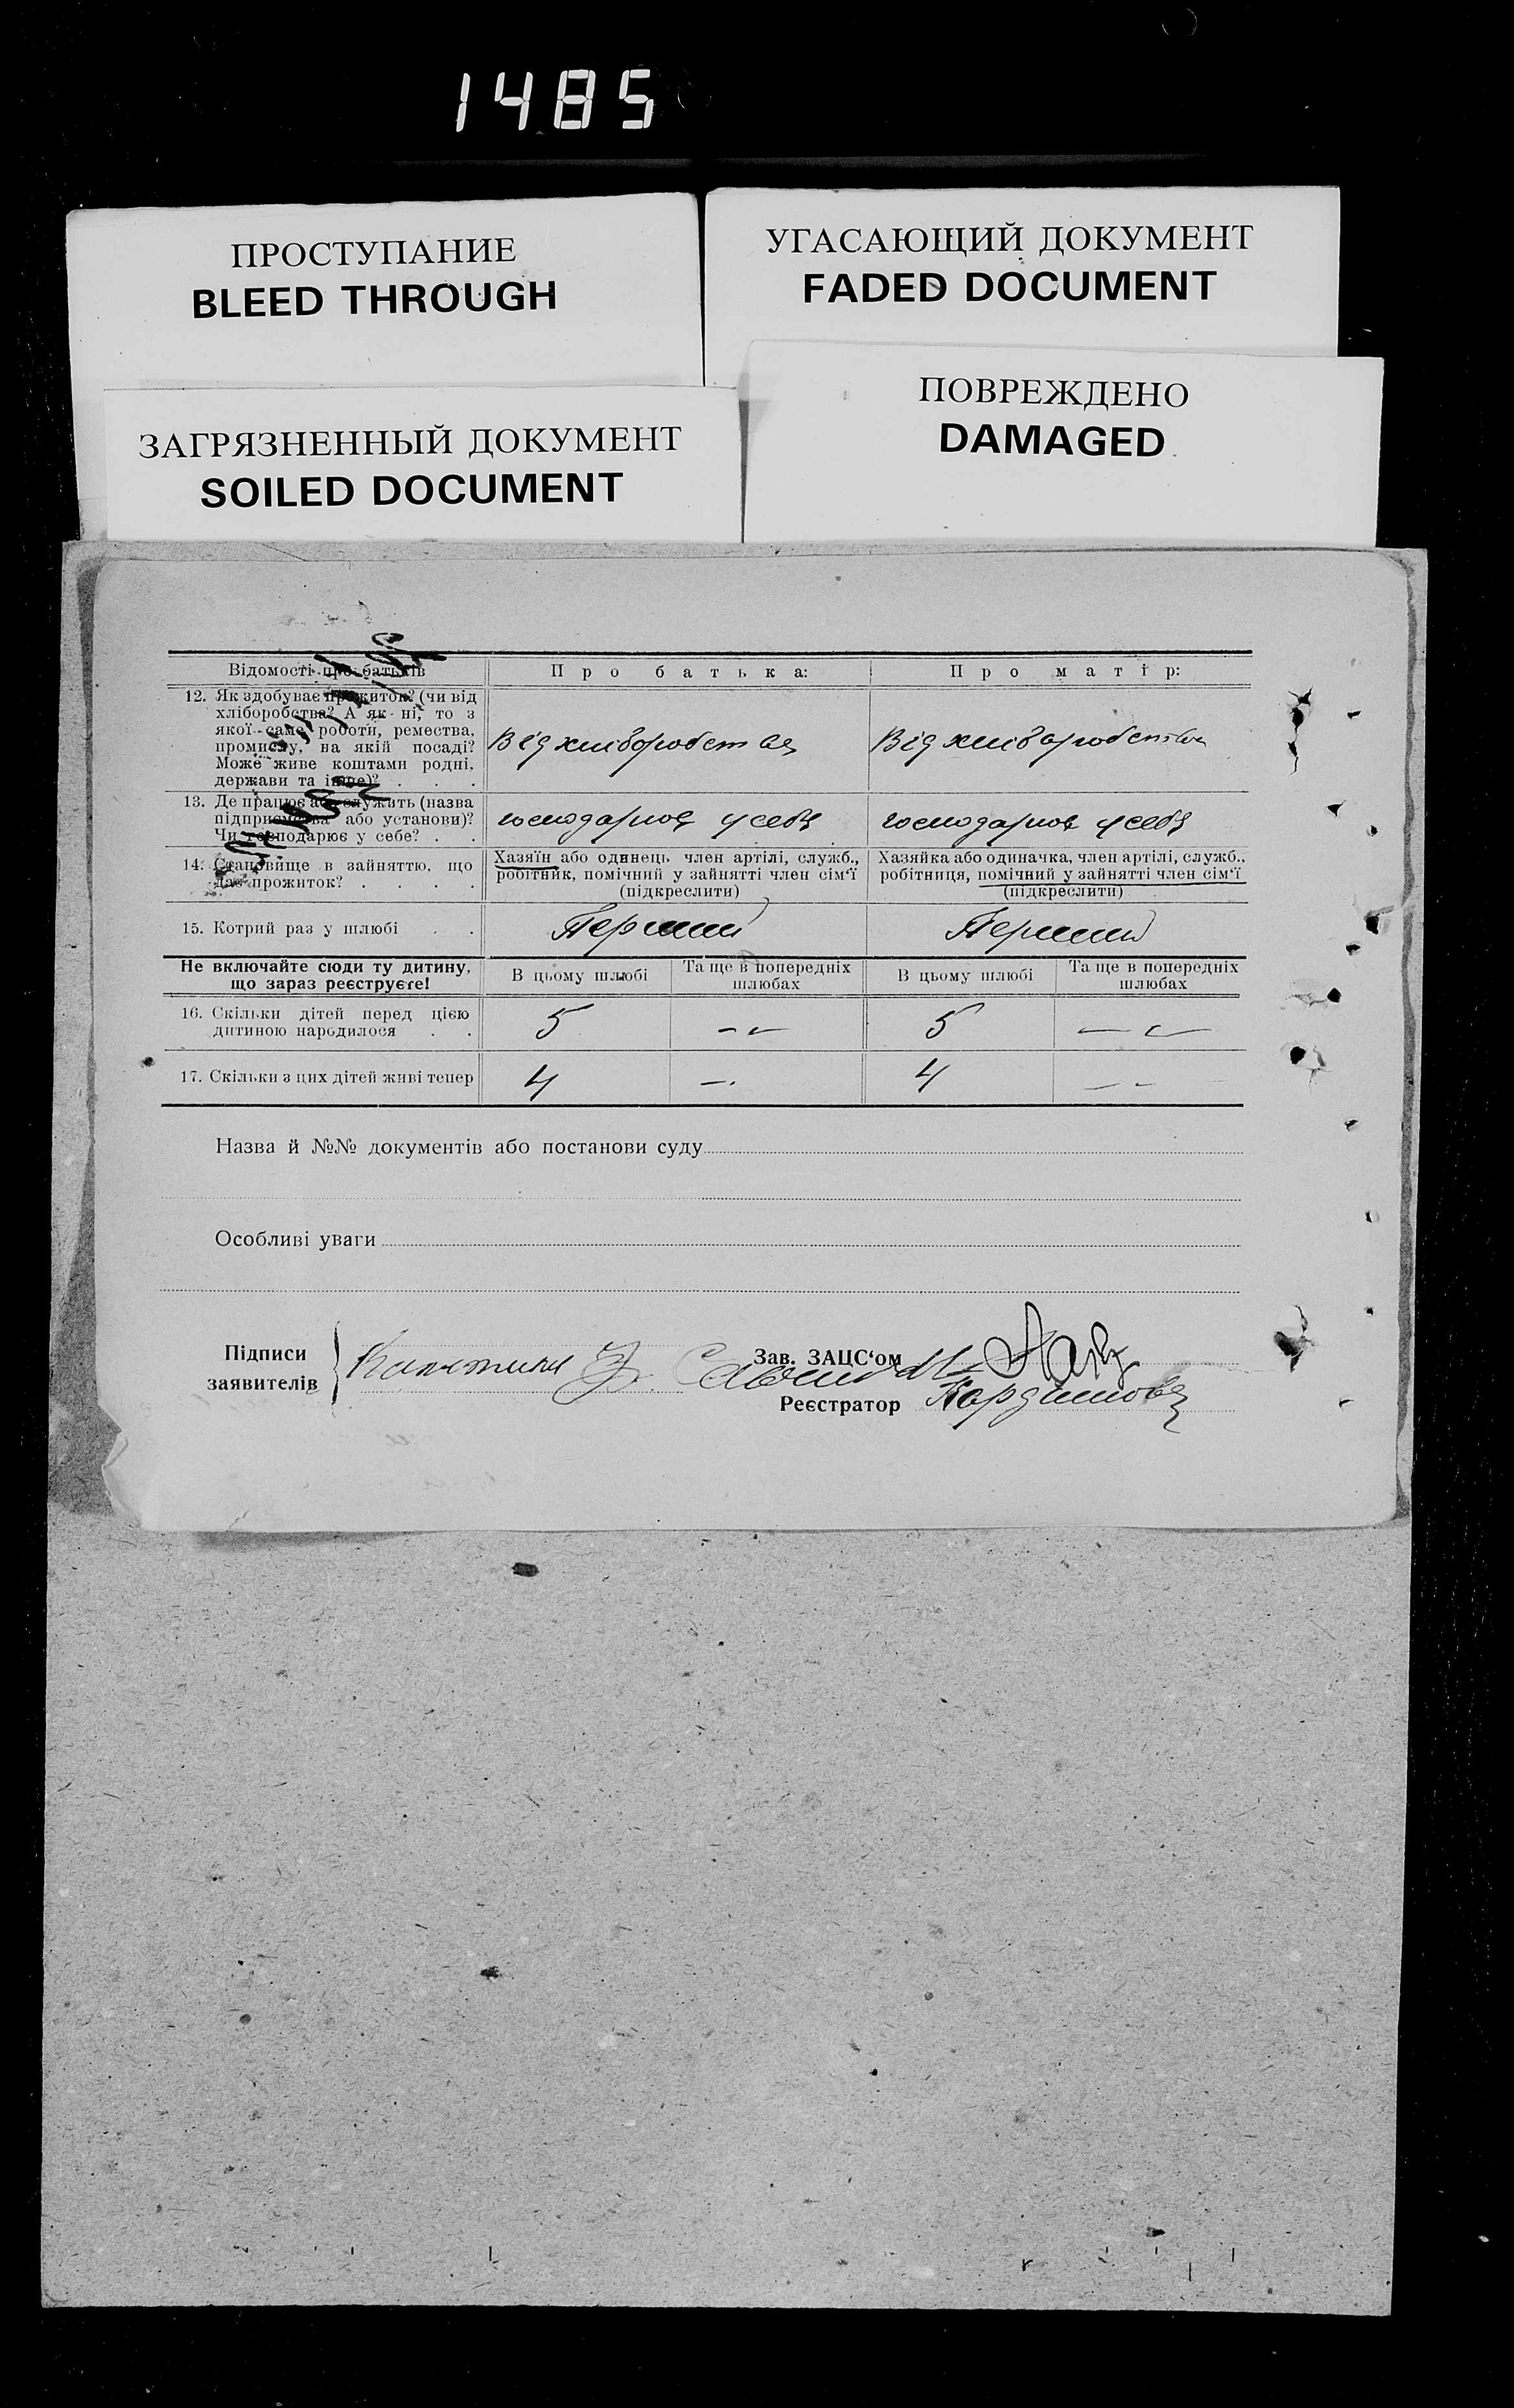 1485
ПРОСТУПАНИЕ
BLEED THROUGH
УГАСАЮЩИЙ ДОКУМЕНТ
FADED DOCUMENT
ЗАГРЯЗНЕННЫЙ ДОКУМЕНТ
SOILED DOCUMENT
ПОВРЕЖДЕНО
DAMAGED
Відомості про батьків
Про батька:
Про матір:
12. Як здобуває прожиток? (чи від
хліборобства? А як ні, то з
якої саме роботи, ремества,
промислу, на якій посаді?
Може живе коштами родні,
держави та інше)? . . .
Від хліборобства
Від хліборобства
13. Де працює або служить (назва
підприємства або установи)?
Чи господарює у себе? . .
господарює у себе
господарює у себе
14. Становище в зайняттю, що
дає прожиток? . . . .
Хазяїн або одинець член артілі, служб.,
робітник, помічний у зайнятті член сім'ї
(підкреслити)
Хазяйка або одиначка, член артілі, служб.,
робітниця, помічний у зайнятті член сім'ї
(підкреслити)
15. Котрий раз у шлюбі . .
Перший
Перший
Не включайте сюди ту дитину,
що зараз реєструєте!
В цьому шлюбі
Та ще в попередніх
шлюбах
В цьому шлюбі
Та ще в попередніх
шлюбах
16. Скільки дітей перед цією
дитиною народилося . .
5
— —
5
— —
17. Скільки з цих дітей живі тепер
4
—
4
— —
Назва й №№ документів або постанови суду
Особливі уваги
Підписи
заявителів
Зав. ЗАЦС‘ом
Реєстратор